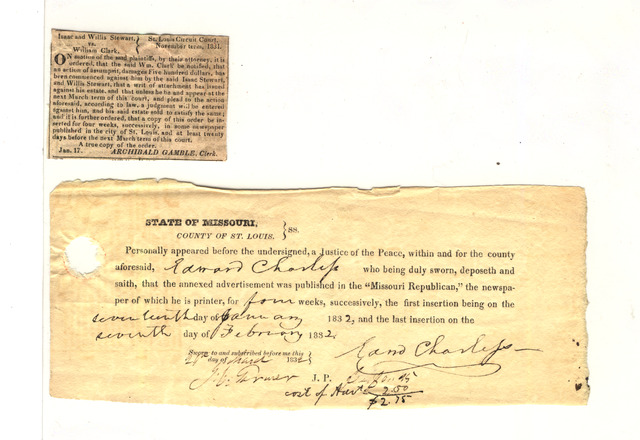 Isaac and Willis Stewart, } St. Louis Circuit Court,
vs. November term, 1831.
William Clark.
ON motion of the said plaintiffs, by their attorney, it is
ordered, that the said Wm. Clark be notified, that
an action of assumpsit, damages Five hundred dollars, has
been commenced against him by the said Isaac Stewart,
and Willis Stewart, that a writ of attachment has issued
against his estate, and that unless he be and appear at the
next March term of this court, and plead to the action
aforesaid, according to law, a judgment will be entered
against him, and his said estate sold to satisfy the same;
and it is further ordered, that a copy of this order be in-
serted for four weeks, successively, in some newspaper
published in the city of St. Louis, and at least twenty
days before the next March term of this court.
A true copy of the order.
Jan. 17. ARCHIBALD GAMBLE, Clerk.
STATE OF MISSOURI, } SS.
COUNTY OF ST. LOUIS.
Personally appeared before the undersigned, a Justice of the Peace, within and for the county
aforesaid, Edward Charless who being duly sworn, deposeth and
saith, that the annexed advertisement was published in the "Missouri Republican," the newspa-
per of which he is printer, for four weeks, successively, the first insertion being on the
seventeenth day of January 1832, and the last insertion on the
seventh day of February 1832.
Sworn to and subscribed before me this
day of March 1832 } Edwd Charless
J. P.
cost of 2.50
$2.75